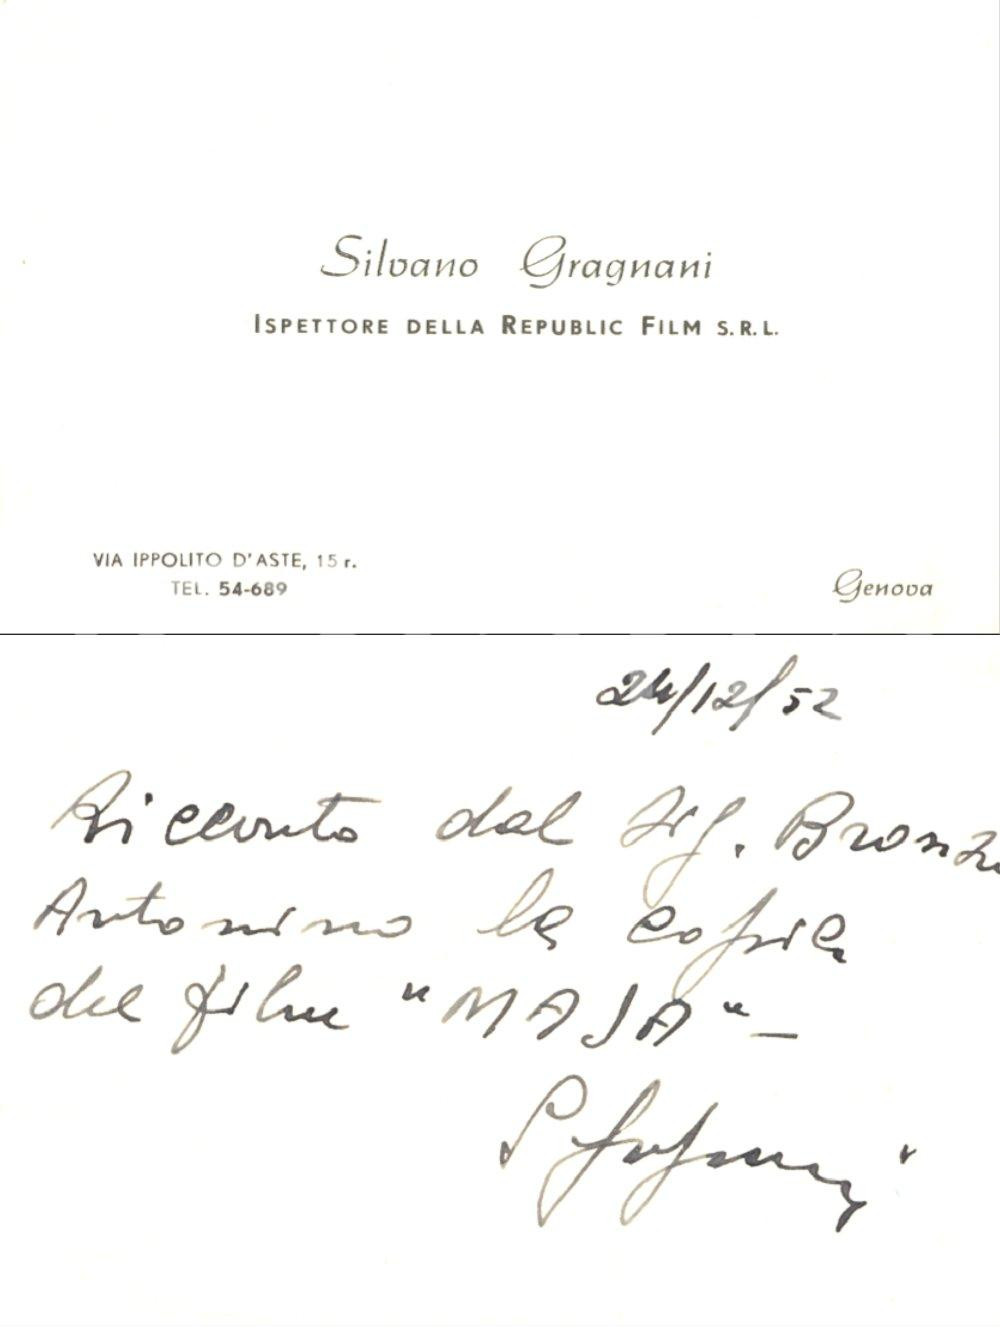 Silvano Gragnani
ISPETTORE DELLA REPUBLIC FILM S.R.L.
VIA IPPOLITO D'ASTE, 15 r.
TEL. 54-689
Genova
24/12/52
Ricevuto dal Sig. Bronzi
Antonino la copia
del film "MAJA" -